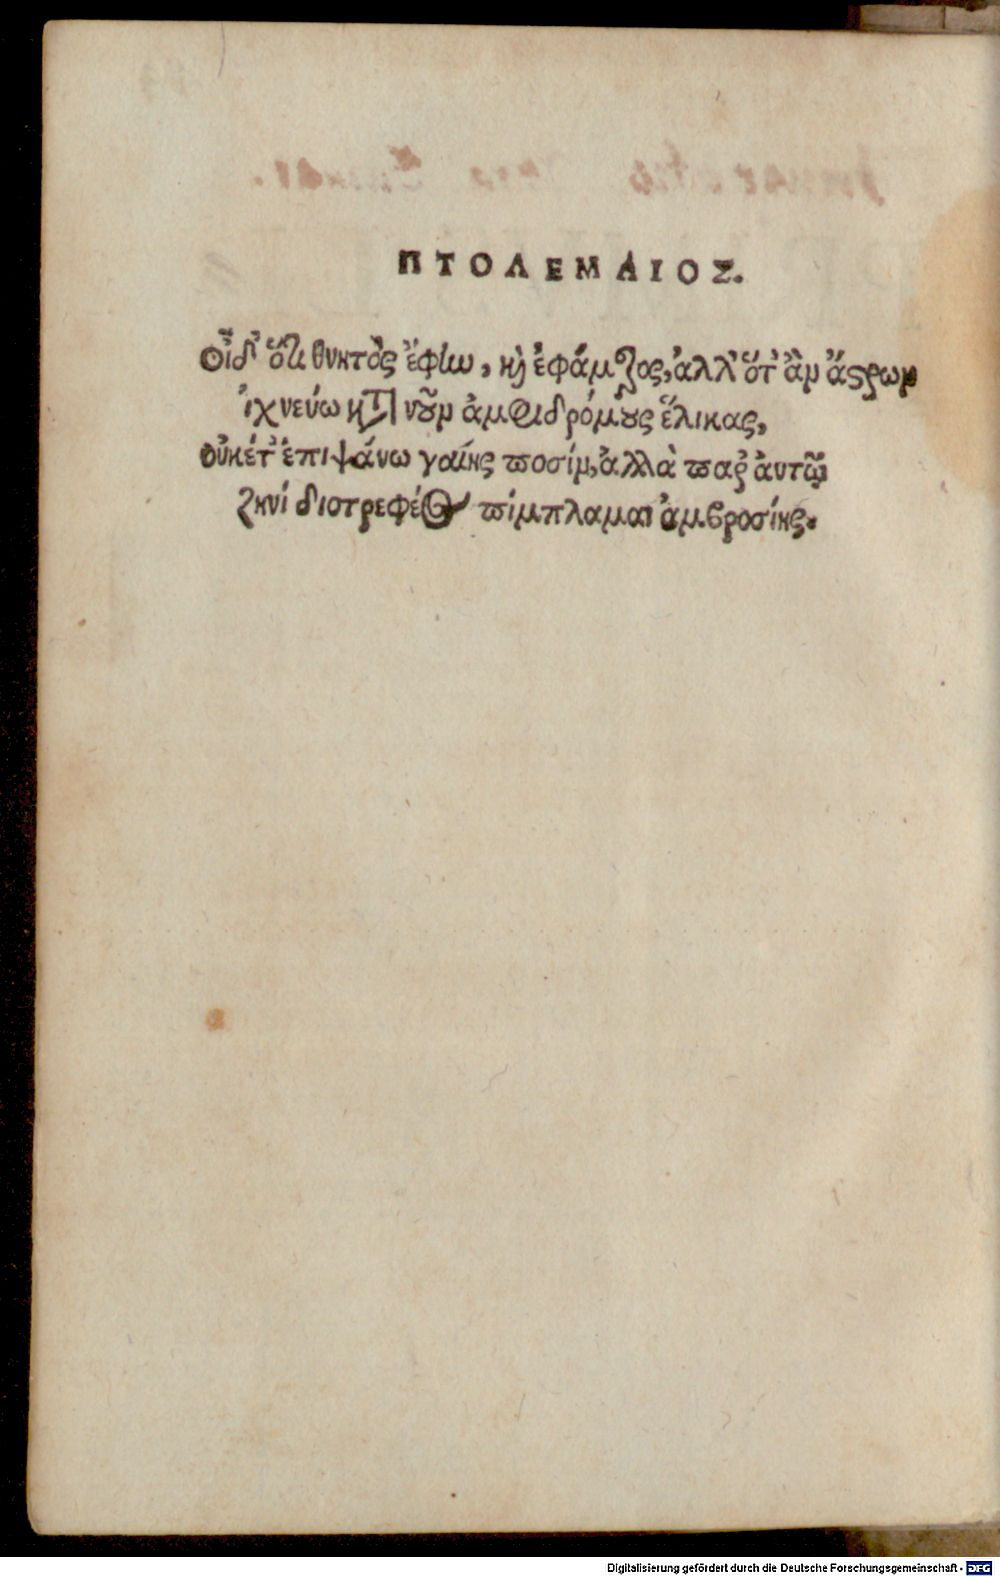 ΠΤΟΛΕΜΑΙΟΣ.
Οἶδ' ὅτι θνητὸς ἔφυν, καὶ ἐφάμερος, ἀλλ' ὅτ' ἂν ἄστρων
ἰχνεύω κατὰ νοῦν ἀμφιδρόμους ἕλικας,
οὐκέτ' ἐπιψάυω γαίης ποσίν, ἀλλὰ παρ' ἀυτῷ
ζηνὶ διοτρεφέος πίμπλαμαι ἀμβροσίης.
Digitalisierung gefördert durch die Deutsche Forschungsgemeinschaft - DFG